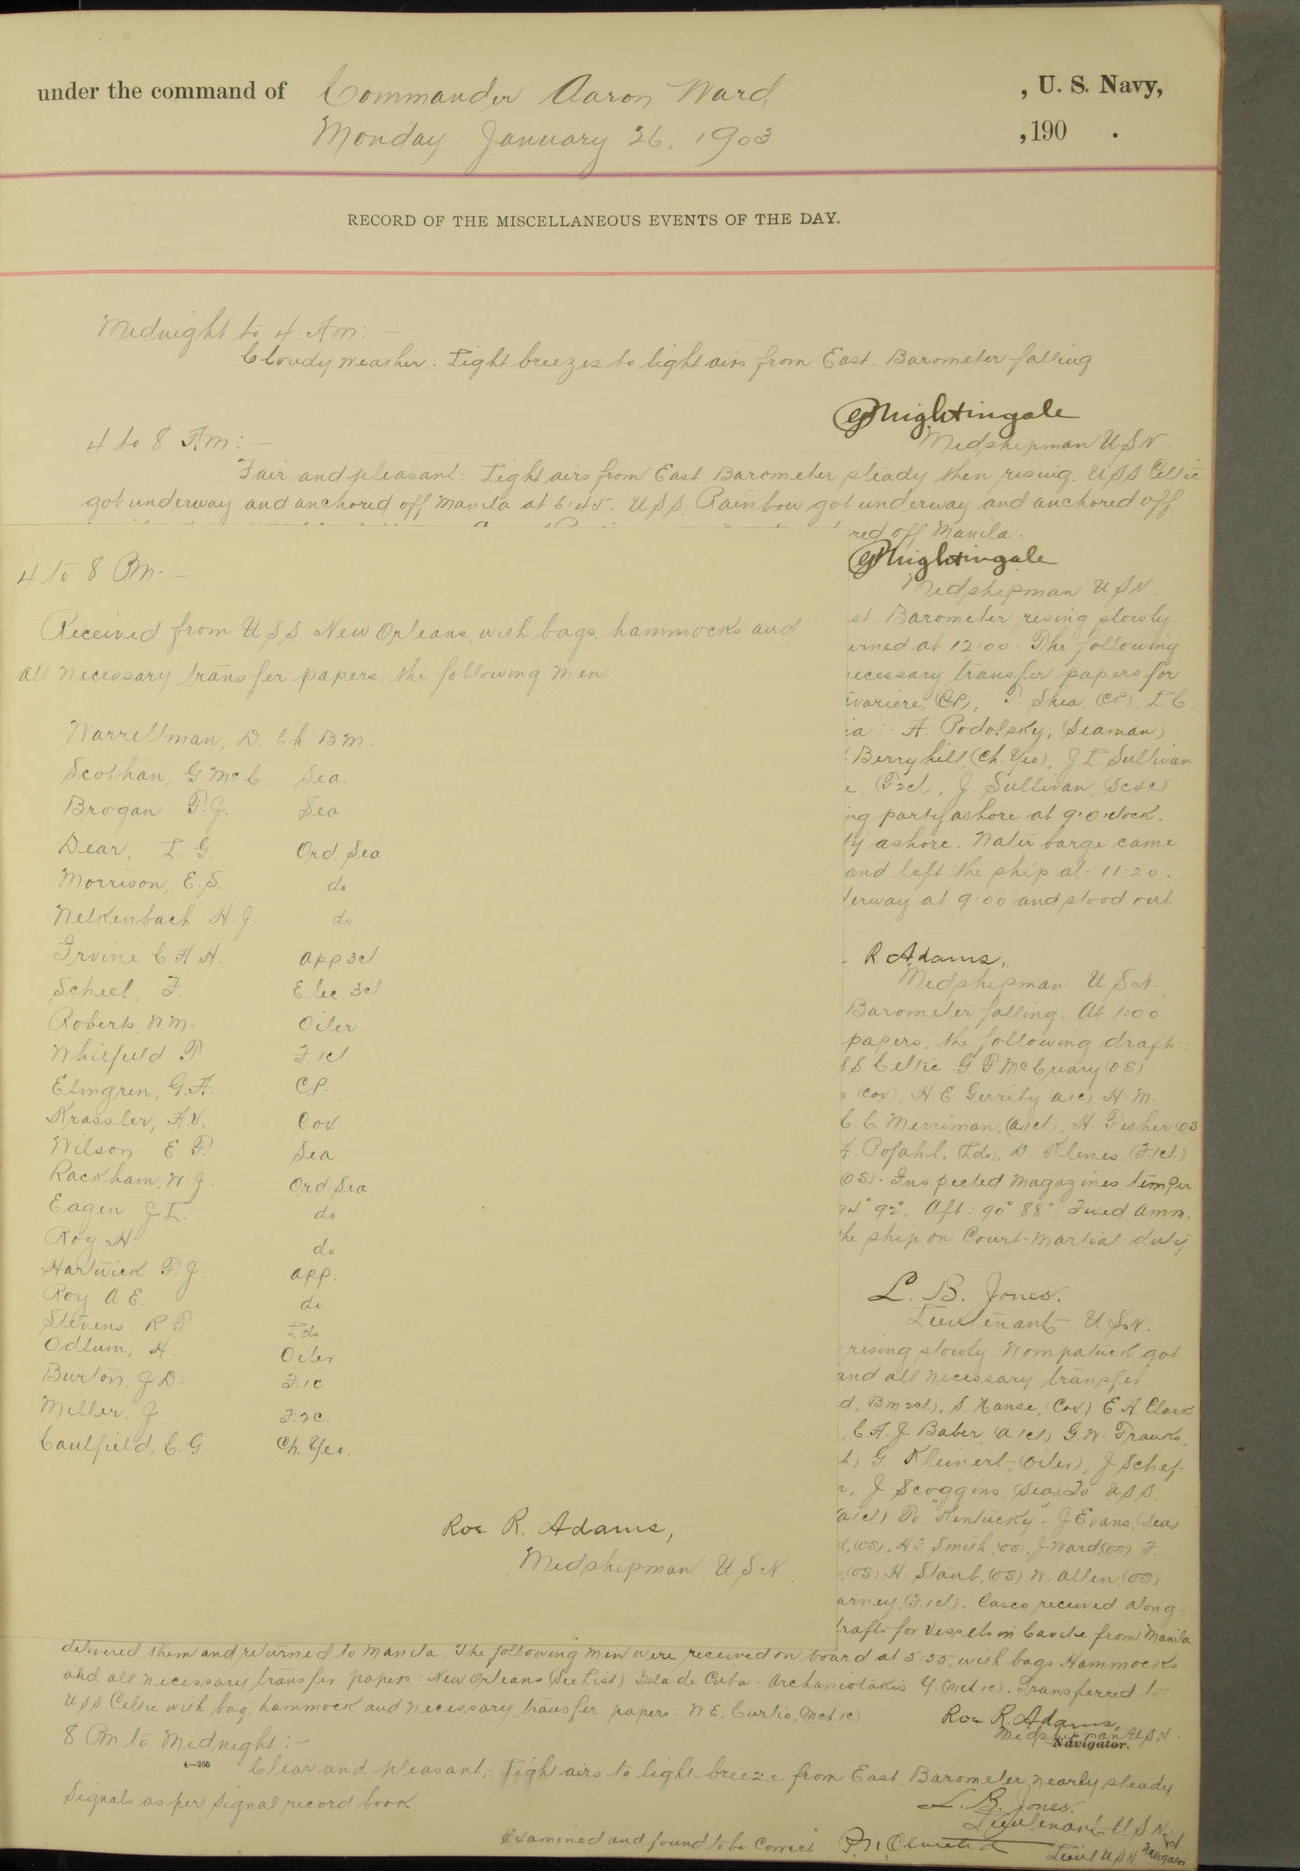 under the command of Commander Aaron Ward , U. S. Navy,
Monday January 26, 1903 , 190 .
RECORD OF THE MISCELLANEOUS EVENTS OF THE DAY.
Midnight to 4 Am:-
Cloudy weather. Light breezes to light airs from East. Barometer falling
Nightingale
Midshipman USN.
4 to 8 Am:-
Fair and pleasant: Light airs from East. Barometer steady then rising. USS Celtic
got underway and anchored off Manila at 6:45. USS. Rainbow got underway and anchored off
red off Manila.
Nightingale
Midshipman USN.
4 to 8 Pm:-
Received from USS New Orleans, with bags, hammocks and
all necessary transfer papers, the following men
Warrellman, D. Ch. BM.
Scothan, G McC. Sea.
Brogan P.J. Sea.
Dear, L. G. Ord. Sea.
Morrison, E.S. do
Welkenbach H.J. do
Irvine C H H. App 3cl
Scheel, F. Elec. 3cl
Roberts, WM. Oiler
Whitfield P F.1cl
Elmgren, G.A. CP.
Krassler, A.V. Cox
Wilson E P. Sea
Rackham, W.J. Ord Sea
Eagen J L. do
Roy H. do
Hartwick F. J. App.
Roy A E. do
Stevens R P Lds
Odlum, H. Oiler
Burton, J D. F.1c
Miller, J F.2c.
Caulfield, C. G Ch. Yeo.
Roe R. Adams,
Midshipman USN.
st Barometer rising slowly
urned at 12:00. The following
ecessary transfer papers for
(CP), P. Shea (CP), L C.
ia :- A. Podolsky, (Seaman)
Berryhill (Ch. Yeo), J L. Sullivan
(F2cl), J. Sullivan,
ng party ashore at 9:0'clock.
ty ashore. Water barge came
and left the ship at 11:20.
derway at 9:00 and stood out
R. Adams,
Midshipman USN.
Barometer falling. At 1:00
papers, the following draft:
SS Celtic G P McCreary (OS)
(Cox), H. E. Gerrity (a1c) H. M.
C. C. Merriman, (a1cl), H. Fisher (OS
A. Pofahl, (Lds), D. Klines (F.1cl.)
(OS). Inspected magazines temper
92°, Aft: 90° 88° Fixed amm.
the ship on Court-Martial duty,
L. B. Jones.
Lieutenant USN.
rising slowly. Wompatuck got
and all necessary transfer
d, Bm2cl), S Hanse, (Cox) E A. Clark
C A. J. Baber (a1cl) G. W. Franks,
G. Kleinert, (Oiler), J Schef-
J Scoggins (Sea) To USS.
(a1cl) To "Kentucky" - J Evans (Sea)
(OS), H L Smith (OS), J. Ward (OS) F.
(OS) H. Staub, (OS) W. Allen (OS)
arney, (F.1cl). Casco received along-
drafts for vessels in Cavite from Manila
delivered them and returned to Manila. The following men were received on board at 5:35, with bags Hammocks
and all necessary transfer papers: New Orleans (See List) Isla de Cuba - Archaniotakis Y. (Mch 1c). Transferred to
USS Celtic with bag, hammock and necessary transfer papers: W E. Curtis, (Mch 1c)
Roe R. Adams,
Midshipman USN.
Navigator.
8 Pm to Midnight:-
4—266
Clear and pleasant; Light airs to light breeze from East. Barometer nearly steady
Signals as per signal record book.
L. B. Jones.
Lieutenant USN.
Examined and found to be correct P. N. Olmsted
Lieut USN. and Navigator